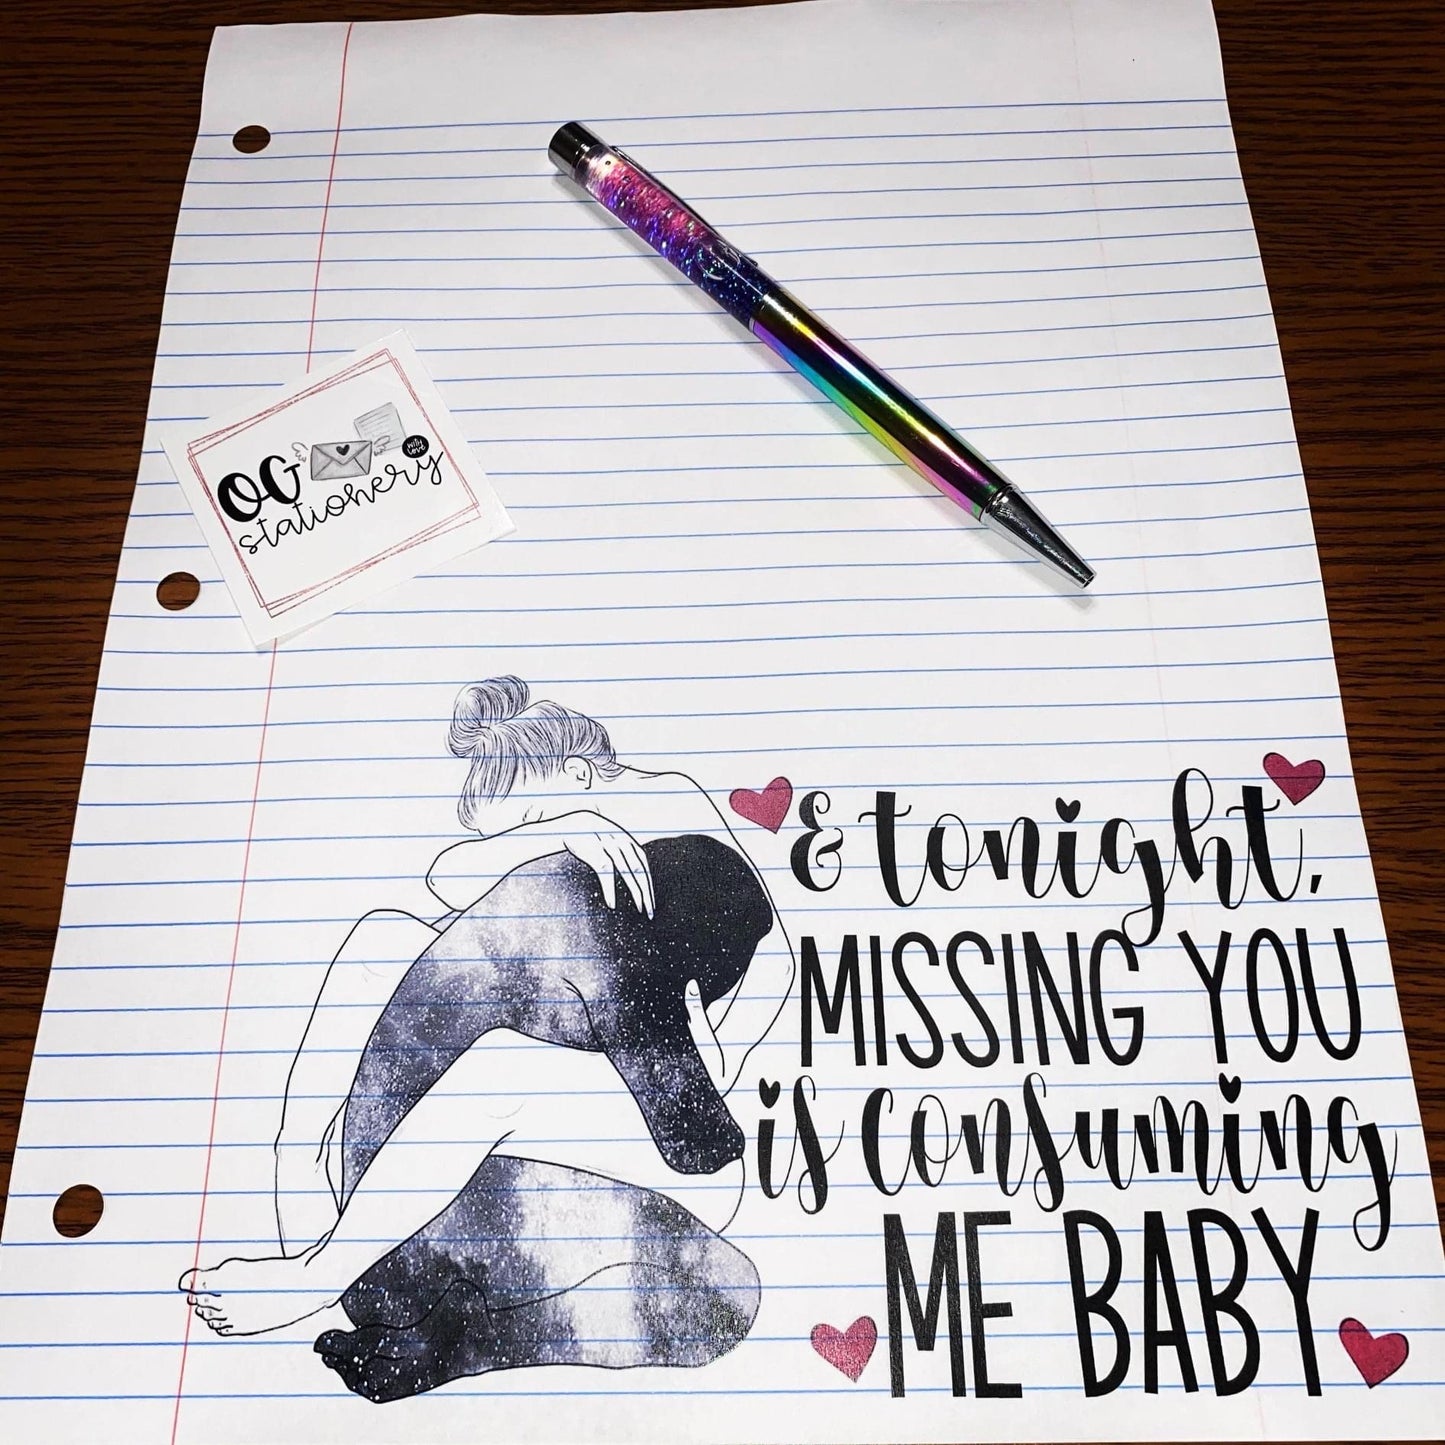 OG
with
love
stationery
& tonight,
MISSING YOU
is consuming
ME BABY